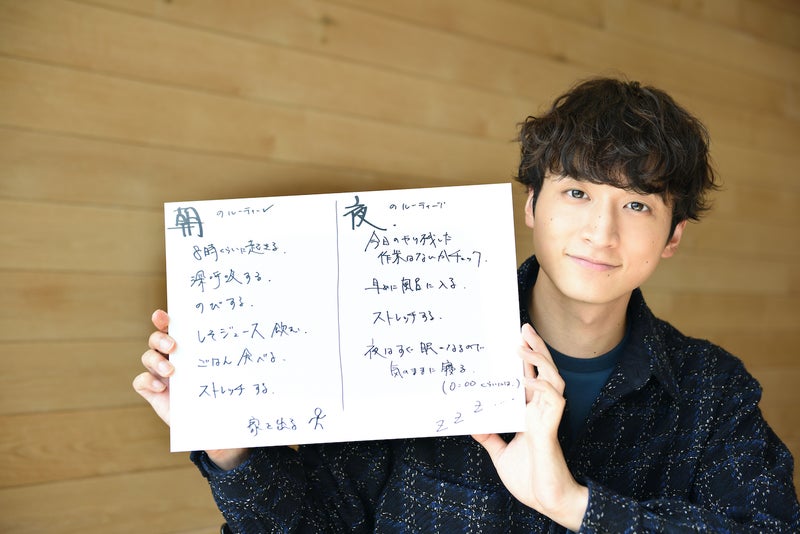 朝のルーティーン
8時くらいに起きる.
深呼吸する.
のびする.
しそジュース飲む.
ごはん食べる.
ストレッチする.
家を出る
夜のルーティーン.
今日のやり残した
作業はないかチェック.
早めに風呂に入る.
ストレッチする.
夜はすぐ眠くなるので
気のままに寝る.
(0:00くらいには.)
z z z ...